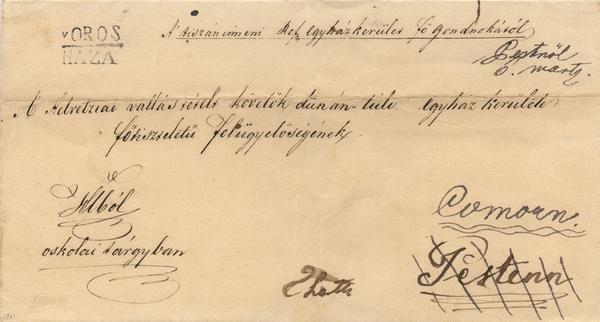 VOROS
HAZA
A' tiszáninneni Ref. Egyházkerület fő Gondnokáról
Pestről
6. martz.
A Helvetziai vallástételt követők dunán-túli Egyház kerülete
főtiszteletű Felügyelőségének
Hlból
oskolai tárgyban
Comorn.
Pesten